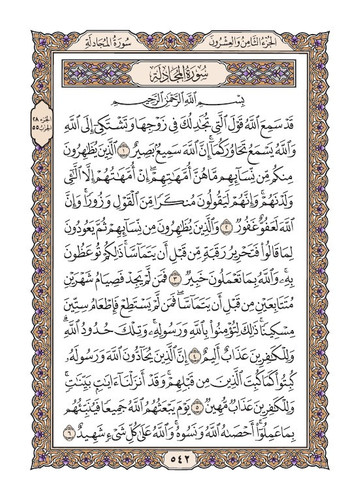 الجُزْءُ الثَّامِنُ وَالعِشْرُونَ
سُورَةُ المُجَادلَةِ
الجزء ٢٨
الحزب ٥٥
سُورَةُ المُجَادلَةِ
بِسْمِ ٱللَّهِ ٱلرَّحْمَٰنِ ٱلرَّحِيمِ
قَدْ سَمِعَ ٱللَّهُ قَوْلَ ٱلَّتِي تُجَٰدِلُكَ فِي زَوْجِهَا وَتَشْتَكِيٓ إِلَى ٱللَّهِ
وَٱللَّهُ يَسْمَعُ تَحَاوُرَكُمَآ إِنَّ ٱللَّهَ سَمِيعٌۢ بَصِيرٌ ١ ٱلَّذِينَ يُظَٰهِرُونَ
مِنكُم مِّن نِّسَآئِهِم مَّا هُنَّ أُمَّهَٰتِهِمْ إِنْ أُمَّهَٰتُهُمْ إِلَّا ٱلَّٰٓـِٔي
وَلَدْنَهُمْ وَإِنَّهُمْ لَيَقُولُونَ مُنكَرًا مِّنَ ٱلْقَوْلِ وَزُورًا وَإِنَّ
ٱللَّهَ لَعَفُوٌّ غَفُورٌ ٢ وَٱلَّذِينَ يُظَٰهِرُونَ مِن نِّسَآئِهِمْ ثُمَّ يَعُودُونَ
لِمَا قَالُوا۟ فَتَحْرِيرُ رَقَبَةٍ مِّن قَبْلِ أَن يَتَمَآسَّا ذَٰلِكُمْ تُوعَظُونَ
بِهِۦ وَٱللَّهُ بِمَا تَعْمَلُونَ خَبِيرٌ ٣ فَمَن لَّمْ يَجِدْ فَصِيَامُ شَهْرَيْنِ
مُتَتَابِعَيْنِ مِن قَبْلِ أَن يَتَمَآسَّا فَمَن لَّمْ يَسْتَطِعْ فَإِطْعَامُ سِتِّينَ
مِسْكِينًا ذَٰلِكَ لِتُؤْمِنُوا۟ بِٱللَّهِ وَرَسُولِهِۦ وَتِلْكَ حُدُودُ ٱللَّهِ
وَلِلْكَٰفِرِينَ عَذَابٌ أَلِيمٌ ٤ إِنَّ ٱلَّذِينَ يُحَآدُّونَ ٱللَّهَ وَرَسُولَهُۥ
كُبِتُوا۟ كَمَا كُبِتَ ٱلَّذِينَ مِن قَبْلِهِمْ وَقَدْ أَنزَلْنَآ ءَايَٰتٍۭ بَيِّنَٰتٍ
وَلِلْكَٰفِرِينَ عَذَابٌ مُّهِينٌ ٥ يَوْمَ يَبْعَثُهُمُ ٱللَّهُ جَمِيعًا فَيُنَبِّئُهُم
بِمَا عَمِلُوٓا۟ أَحْصَىٰهُ ٱللَّهُ وَنَسُوهُ وَٱللَّهُ عَلَىٰ كُلِّ شَيْءٍ شَهِيدٌ ٦
٥٤٢